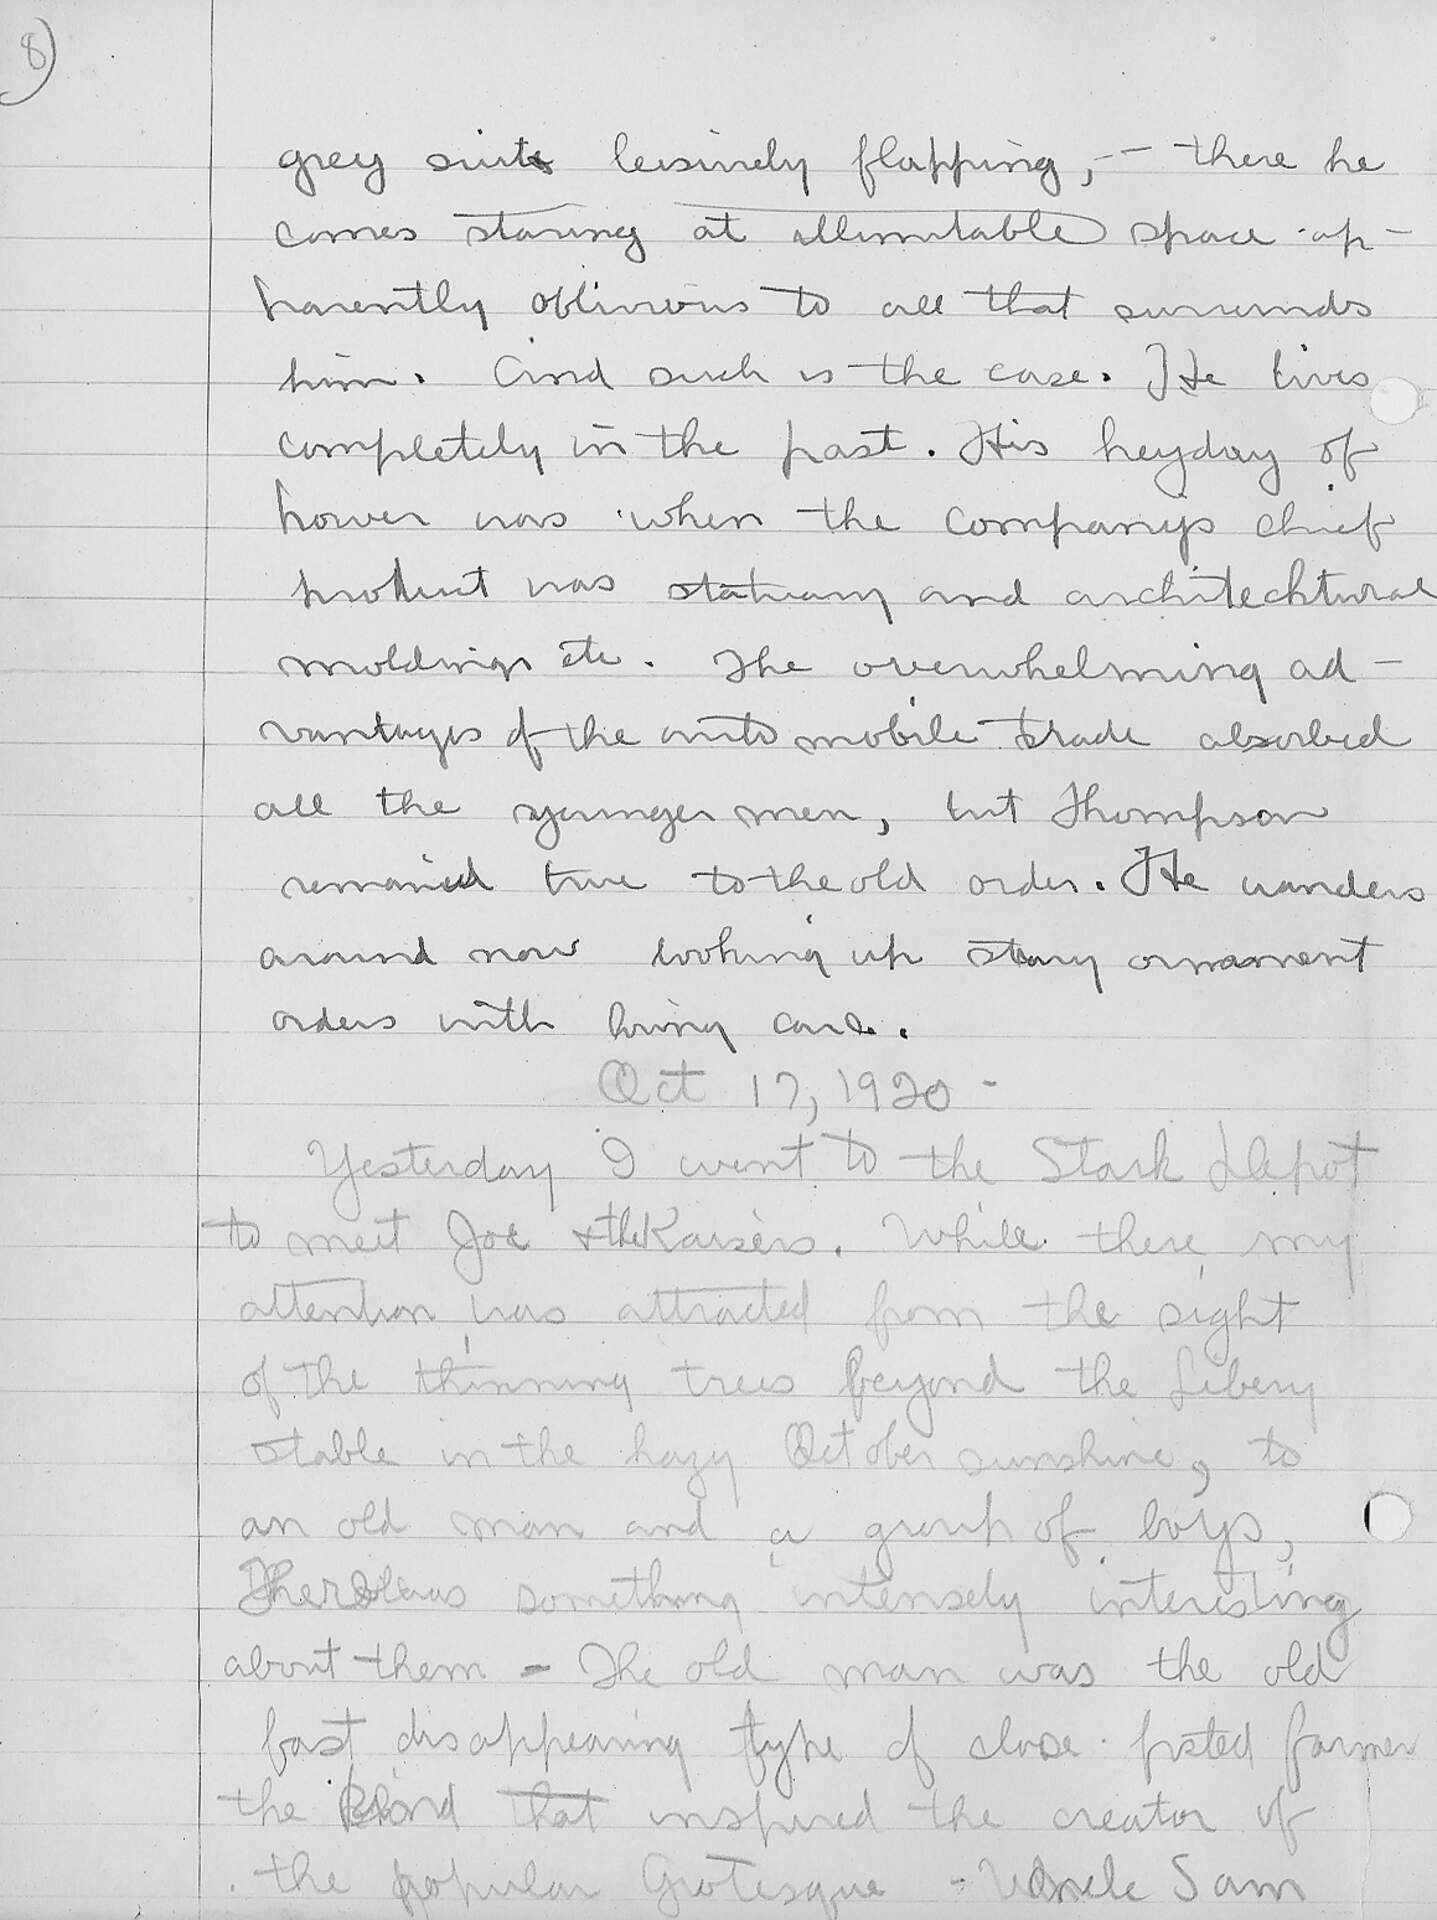 8)
grey suits leisurely flapping, -- there he
comes staring at illimitable space ap-
parently oblivious to all that surrounds
him. And such is the case. He lives
completely in the past. His heyday of
power was when the companys chief
product was statuary and architechtural
moldings etc. The overwhelming ad-
vantages of the auto mobile trade absorbed
all the younger men, but Thompson
remained true to the old order. He wanders
around now looking up stray ornament
orders with loving care.
Oct 17, 1920 -
Yesterday I went to the Stark Depot
to meet Joe & the Kaisers. While there, my
attention was attracted from the sight
of the thinning trees beyond the Libery
stable in the hazy October sunshine, to
an old man and a group of boys,
There was something intensely interesting
about them - The old man was the old
fast disappearing type of close fisted farmer
the kind that inspired the creator of
the popular Grotesque - Uncle Sam